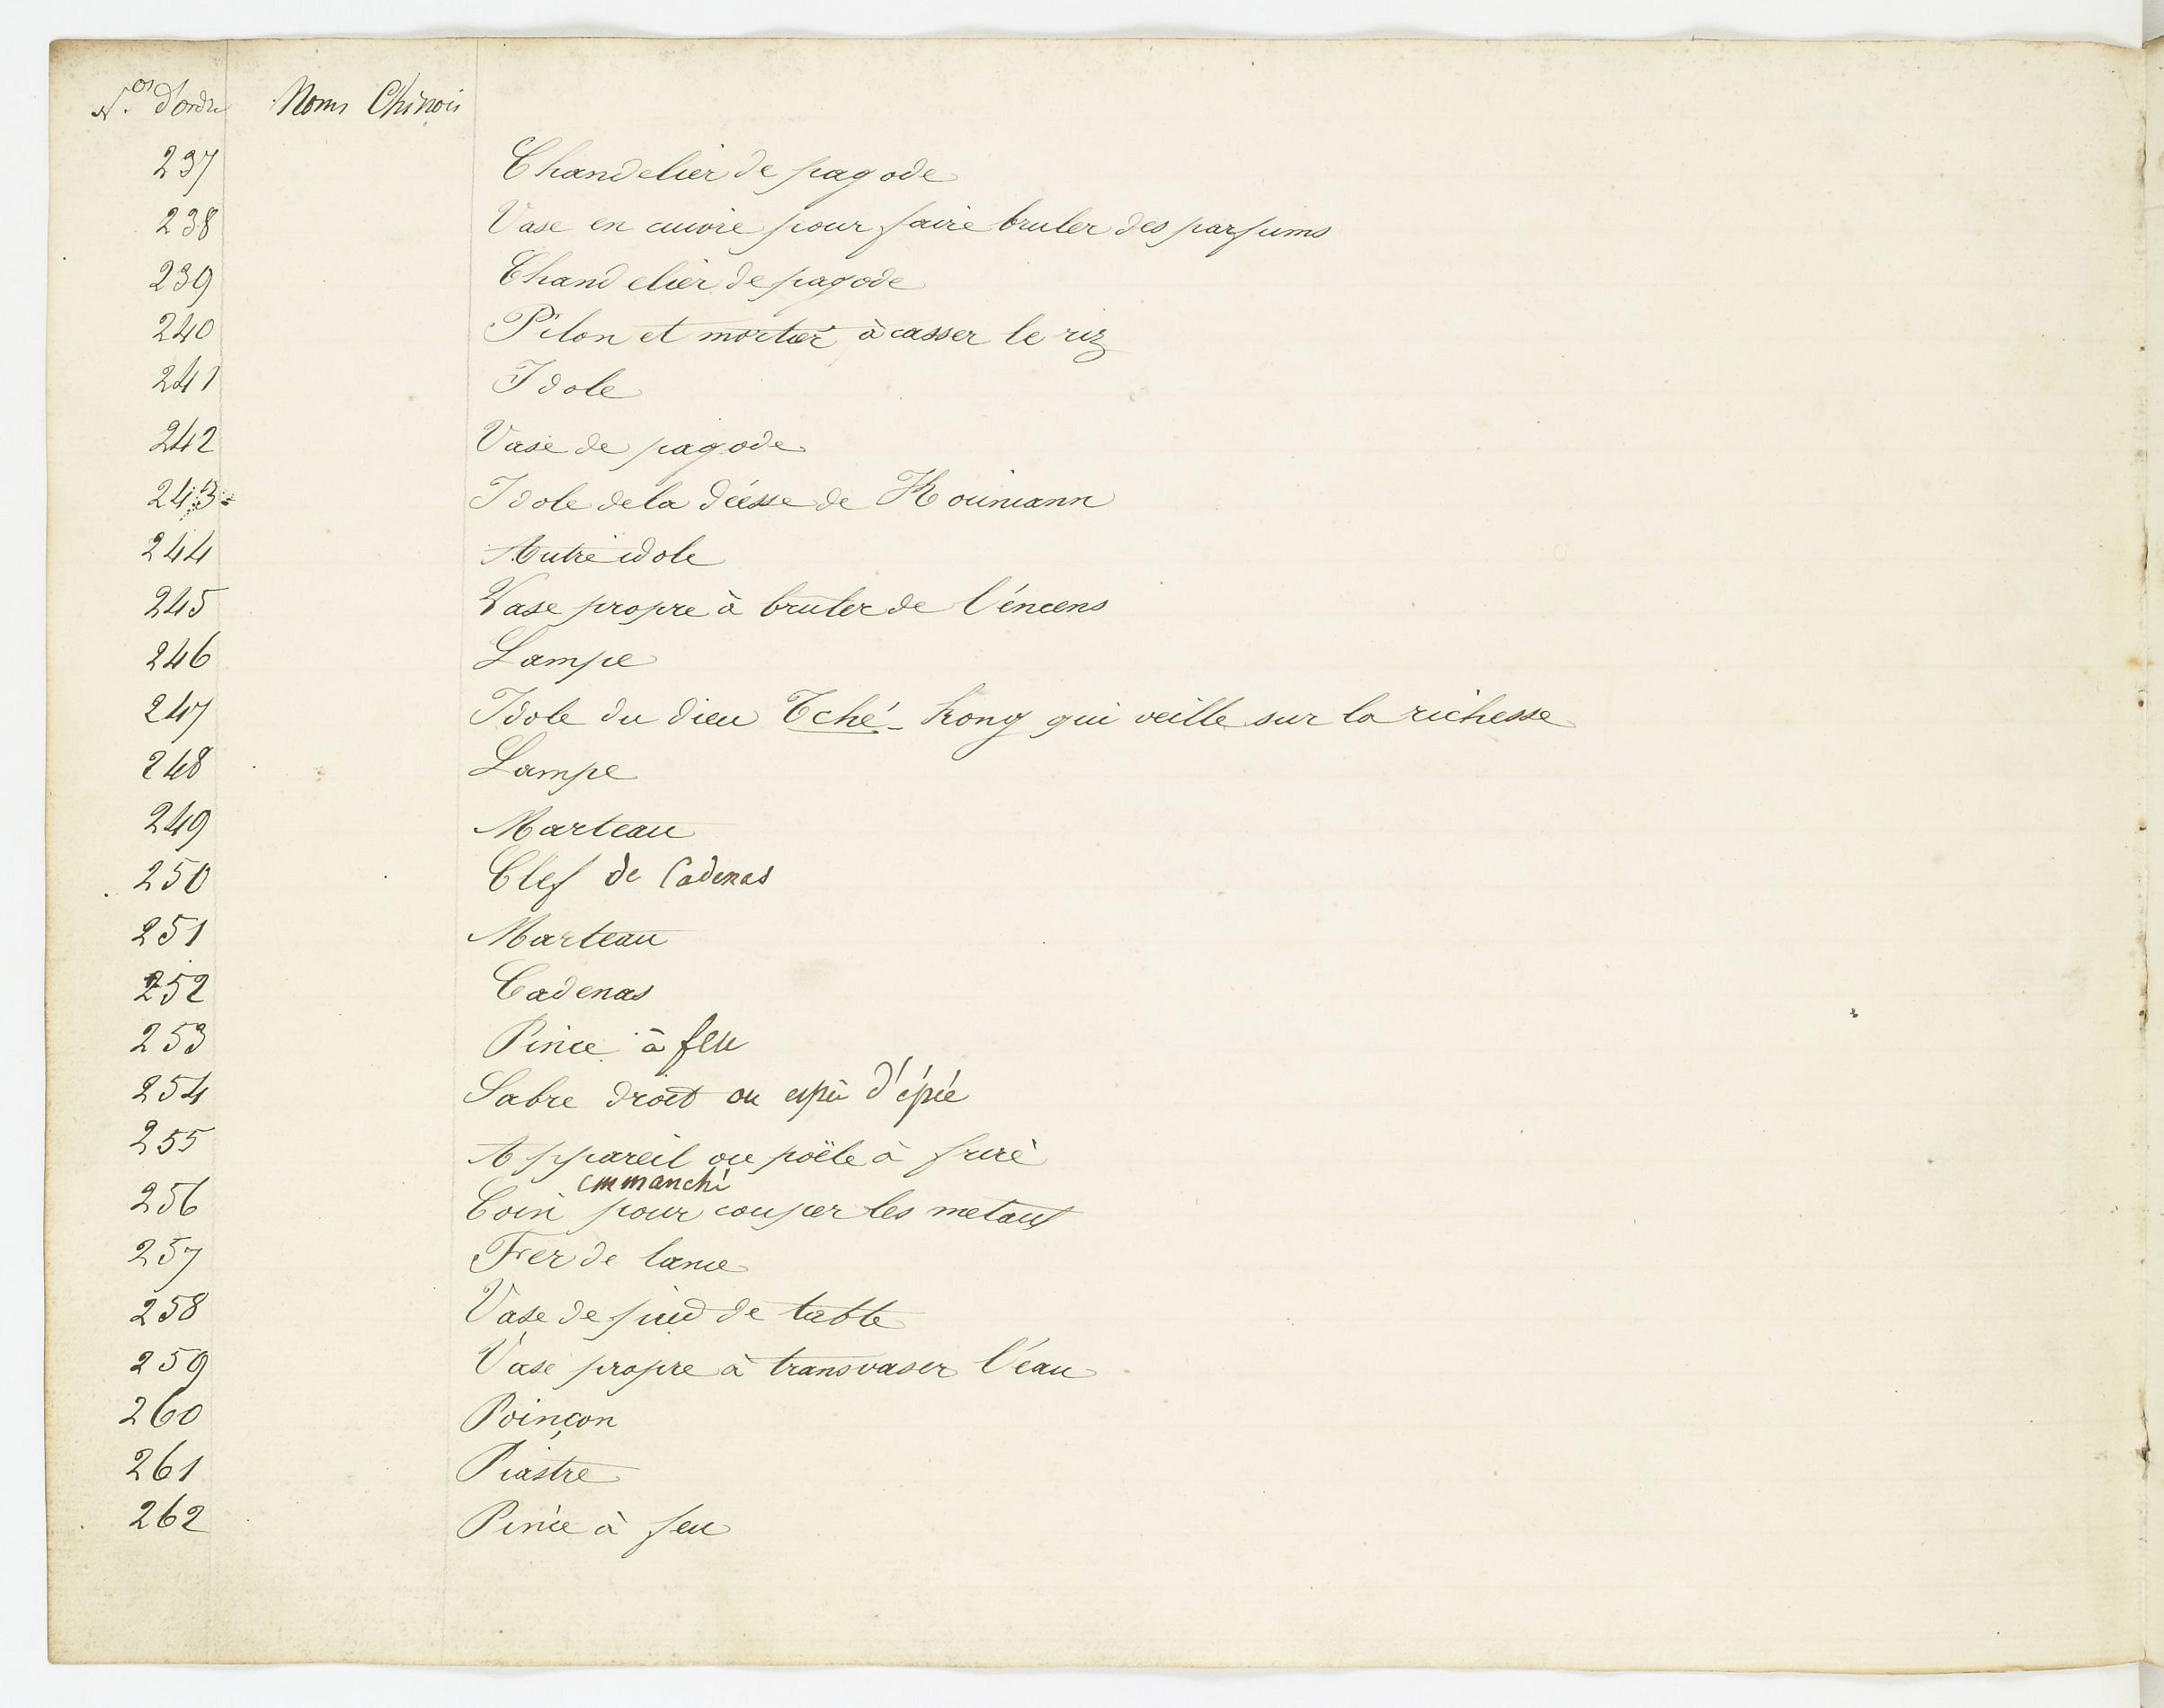 Nos d'ordre Noms Chinois
237 Chandelier de pagode
238 Vase en cuivre pour faire bruler des parfums
239 Chandelier de pagode
240 Pilon et mortier à casser le riz
241 Idole
242 Vase de pagode
243 Idole de la déesse de Kouniann
244 Autre idole
245 Vase propre à bruler de l'éncens
246 Lampe
247 Idole du dieu Tché-kong qui veille sur la richesse
248 Lampe
249 Marteau
250 Clef de Cadenas
251 Marteau
252 Cadenas
253 Pince à feu
254 Sabre droit ou d'épée
255 Appareil ou poële à frire
emmanché
256 Coin pour couper les metaux
257 Fer de lance
258 Vase de pied de table
259 Vase propre à transvaser l'eau
260 Poinçon
261 Piastre
262 Pince à feu